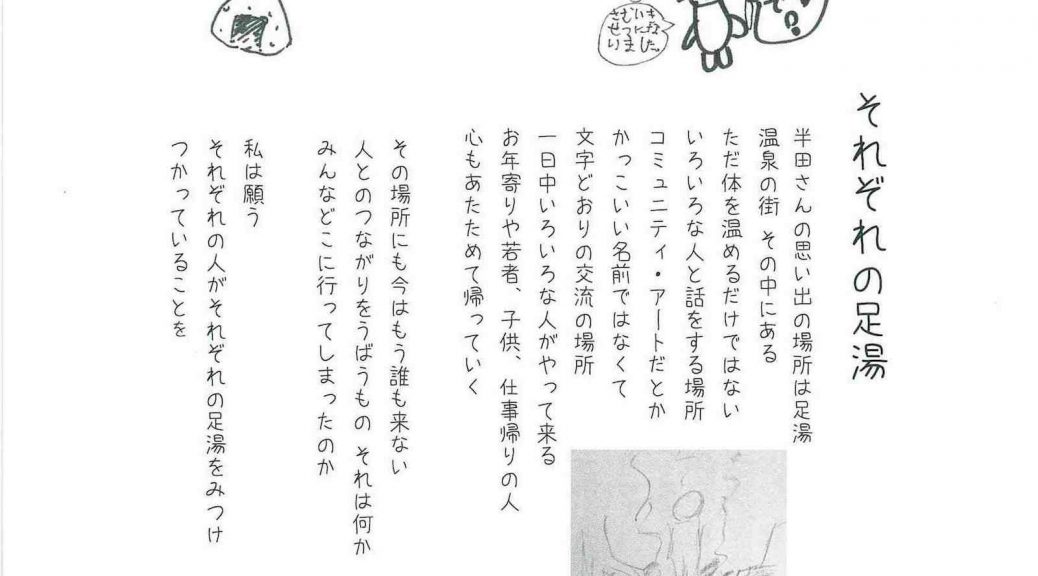 さむいき
せつにな
りました。
それぞれの足湯
半田さんの思い出の場所は足湯
温泉の街 その中にある
ただ体を温めるだけではない
いろいろな人と話をする場所
コミュニティ・アートだとか
かっこいい名前ではなくて
文字どおりの交流の場所
一日中いろいろな人がやって来る
お年寄りや若者、子供、仕事帰りの人
心もあたためて帰っていく
その場所にも今はもう誰も来ない
人とのつながりをうばうもの それは何か
みんなどこに行ってしまったのか
私は願う
それぞれの人がそれぞれの足湯をみつけ
つかっていることを